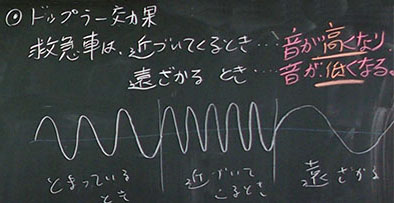 ◎ドップラー交効果
救急車は、近づいてくるとき…音が高くなり
遠ざかる とき…音が低くなる。
とまっている
とき
近づいて
くるとき
遠ざかる